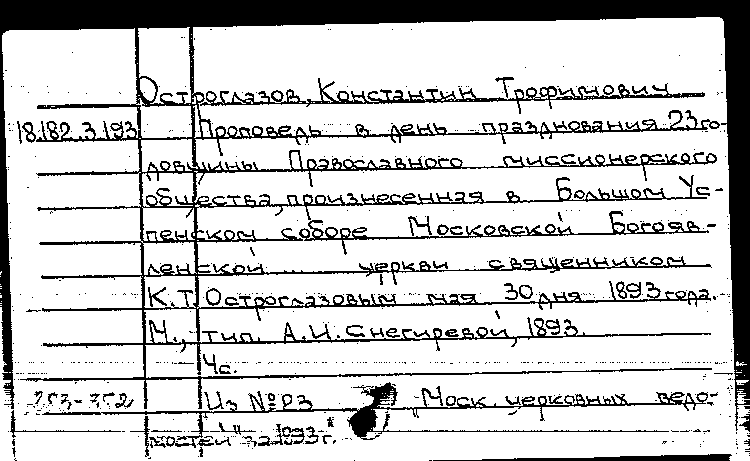 Остроглазов, Константин Трофимович
18.182.3.193 Проповедь в день празднования 23 го-
довщины Православного миссионерского
общества, произнесенная в Большом Ус-
пенском соборе Московской Богояв-
ленской ... церкви священником
К.Т. Остроглазовым мая 30 дня 1893 года.
М., тип. А.И. Снегиревой, 1893.
4с.
Из № 23 "Моск. церковных ведо-
мостей" за 1893 г.